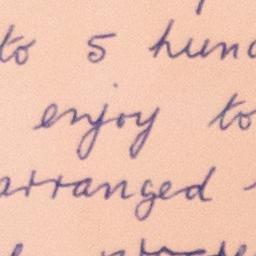 to 5 hund
enjoy to
arranged